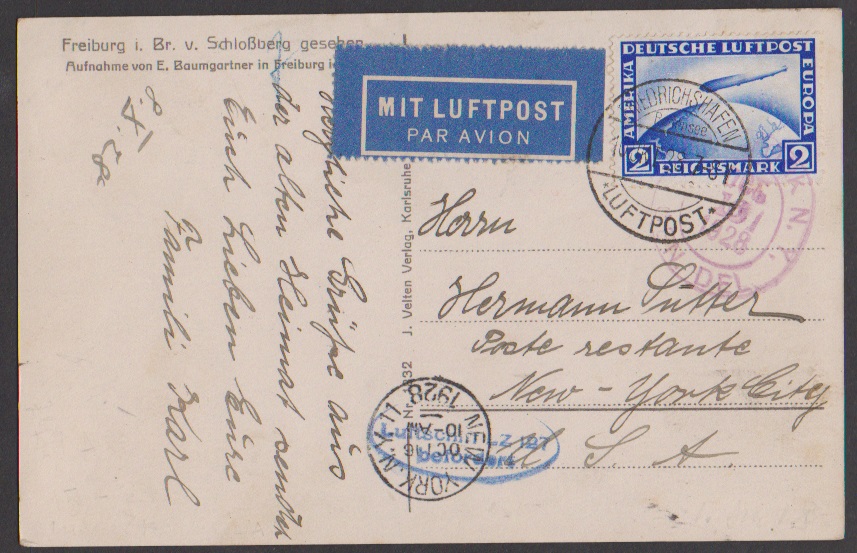 Freiburg i. Br. v. Schloßberg gesehen
Aufnahme von E. Baumgartner in Freiburg i
8. X. 28
Herzliche Grüße aus
der alten Heimat sendet
Euch Lieben Eure
Famili Karl
J. Velten Verlag, Karlsruhe
Nr. 332
MIT LUFTPOST
PAR AVION
DEUTSCHE LUFTPOST
AMERIKA
EUROPA
2 REICHSMARK 2
FRIEDRICHSHAFEN
LUFTPOST
K N. Y.
1928
DEL
Herrn
Hermann Sutter
Poste restante
New-York City
U. S. A.
NEW YORK N.Y. 11
OCT 16
10-AM
1928
Luftschiff LZ 127
befördert